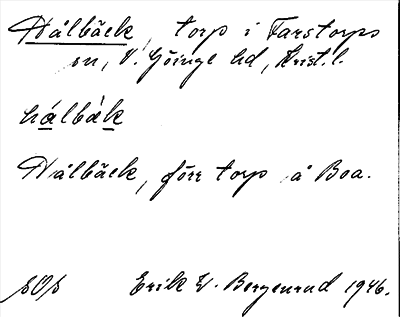 Hålbäck, torp i Farstorps
sn, V. Göinge hd, Krist. l.
hålbäk
Hålbäck, förr torp å Boa.
sOs Erik W. Bergenrud 1946.